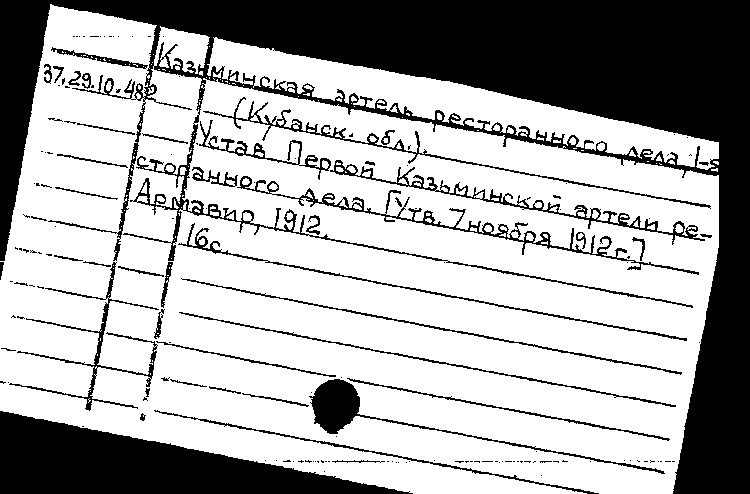 Казьминская артель ресторанного дела, 1-я
37.29.10.482
(Кубанск. обл.).
Устав Первой Казьминской артели ре-
сторанного дела. [Утв. 7 ноября 1912 г.]
Армавир, 1912.
16с.